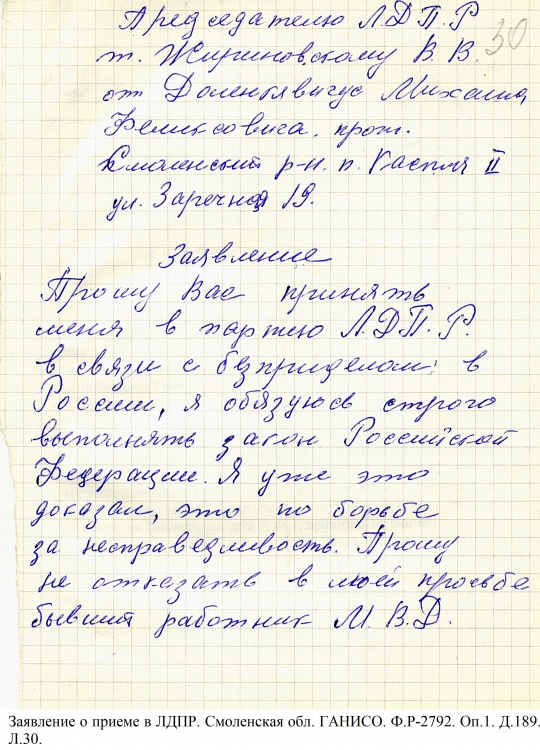 Председателю Л.Д.П.Р
30
т. Жириновскому В. В.
от Доленкявичус Михаила
Феликсовича. прож.
Смоленский р-н. п. Каспля II
ул. Заречная 19.
Заявление
Прошу Вас принять
меня в партею Л.Д.П.Р.
в связи с безприделом в
России, я обязуюсь строго
выполнять закон Российской
Федерации. Я уже это
доказал, это по борьбе
за несправедливость. Прошу
не отказать в моей просьбе
бывший работник М.В.Д.
Заявление о приеме в ЛДПР. Смоленская обл. ГАНИСО. Ф.Р-2792. Оп.1. Д.189.
Л.30.